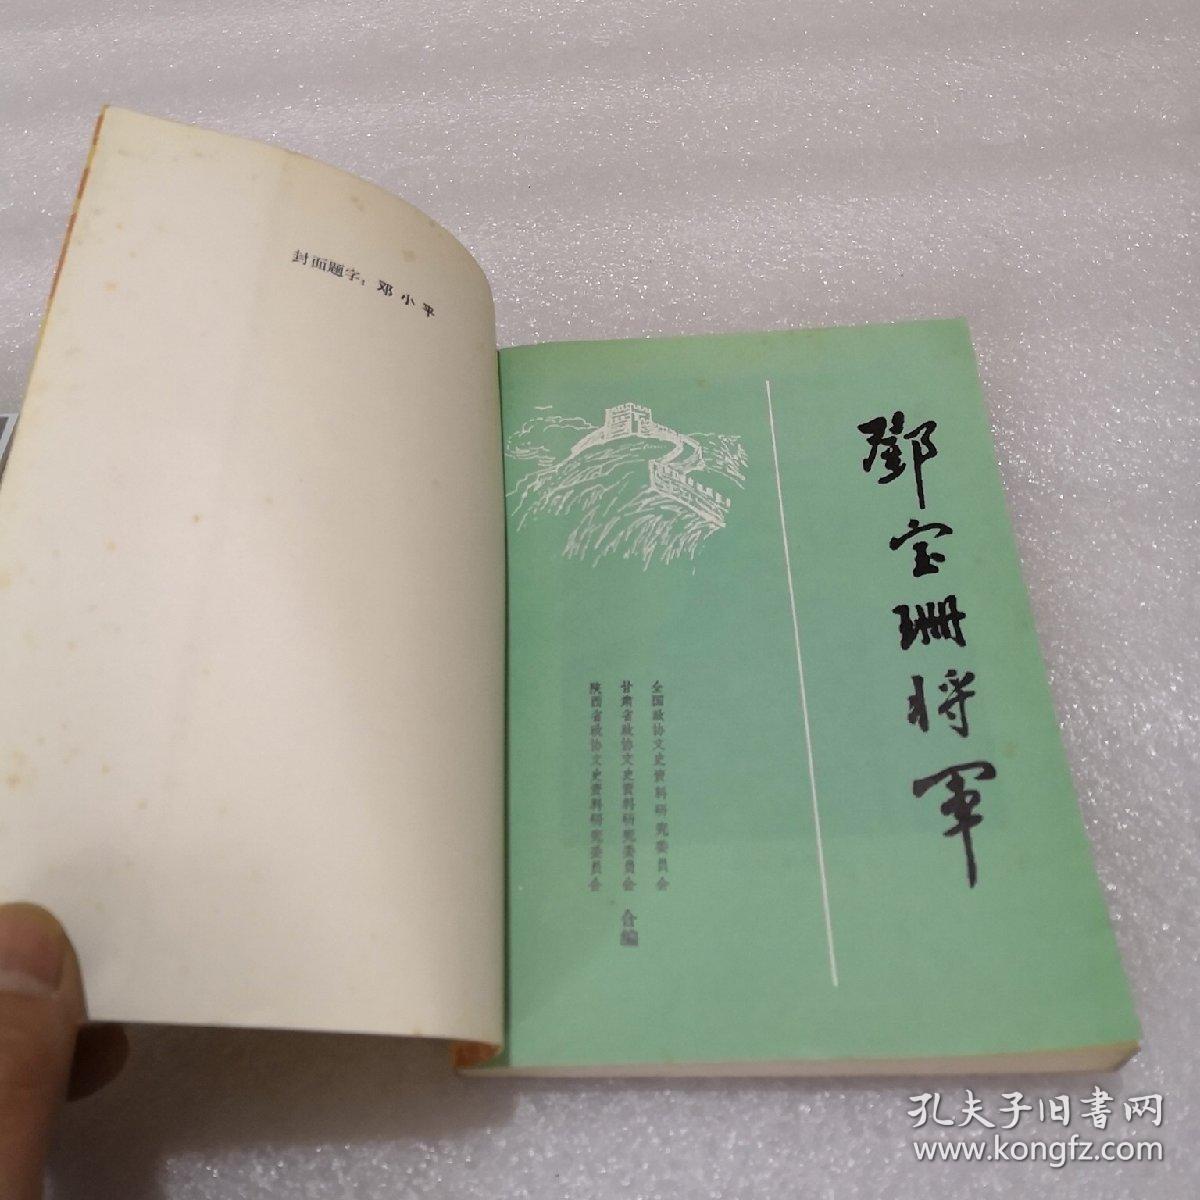 封面题字：邓小平
鄧宝珊将军
全国政协文史资料研究委员会
甘肃省政协文史资料研究委员会
陕西省政协文史资料研究委员会
合编
孔夫子旧书网
www.kongfz.com